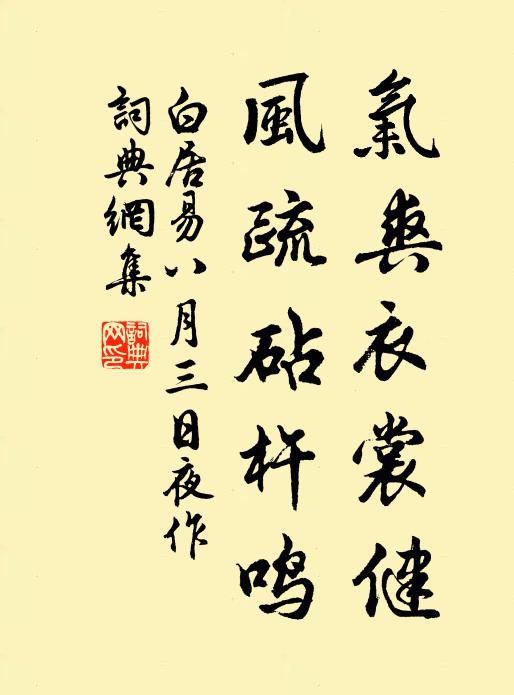 氣爽衣裳健
風疏砧杵鳴
白居易八月三日夜作
詞典網集
詞典網印